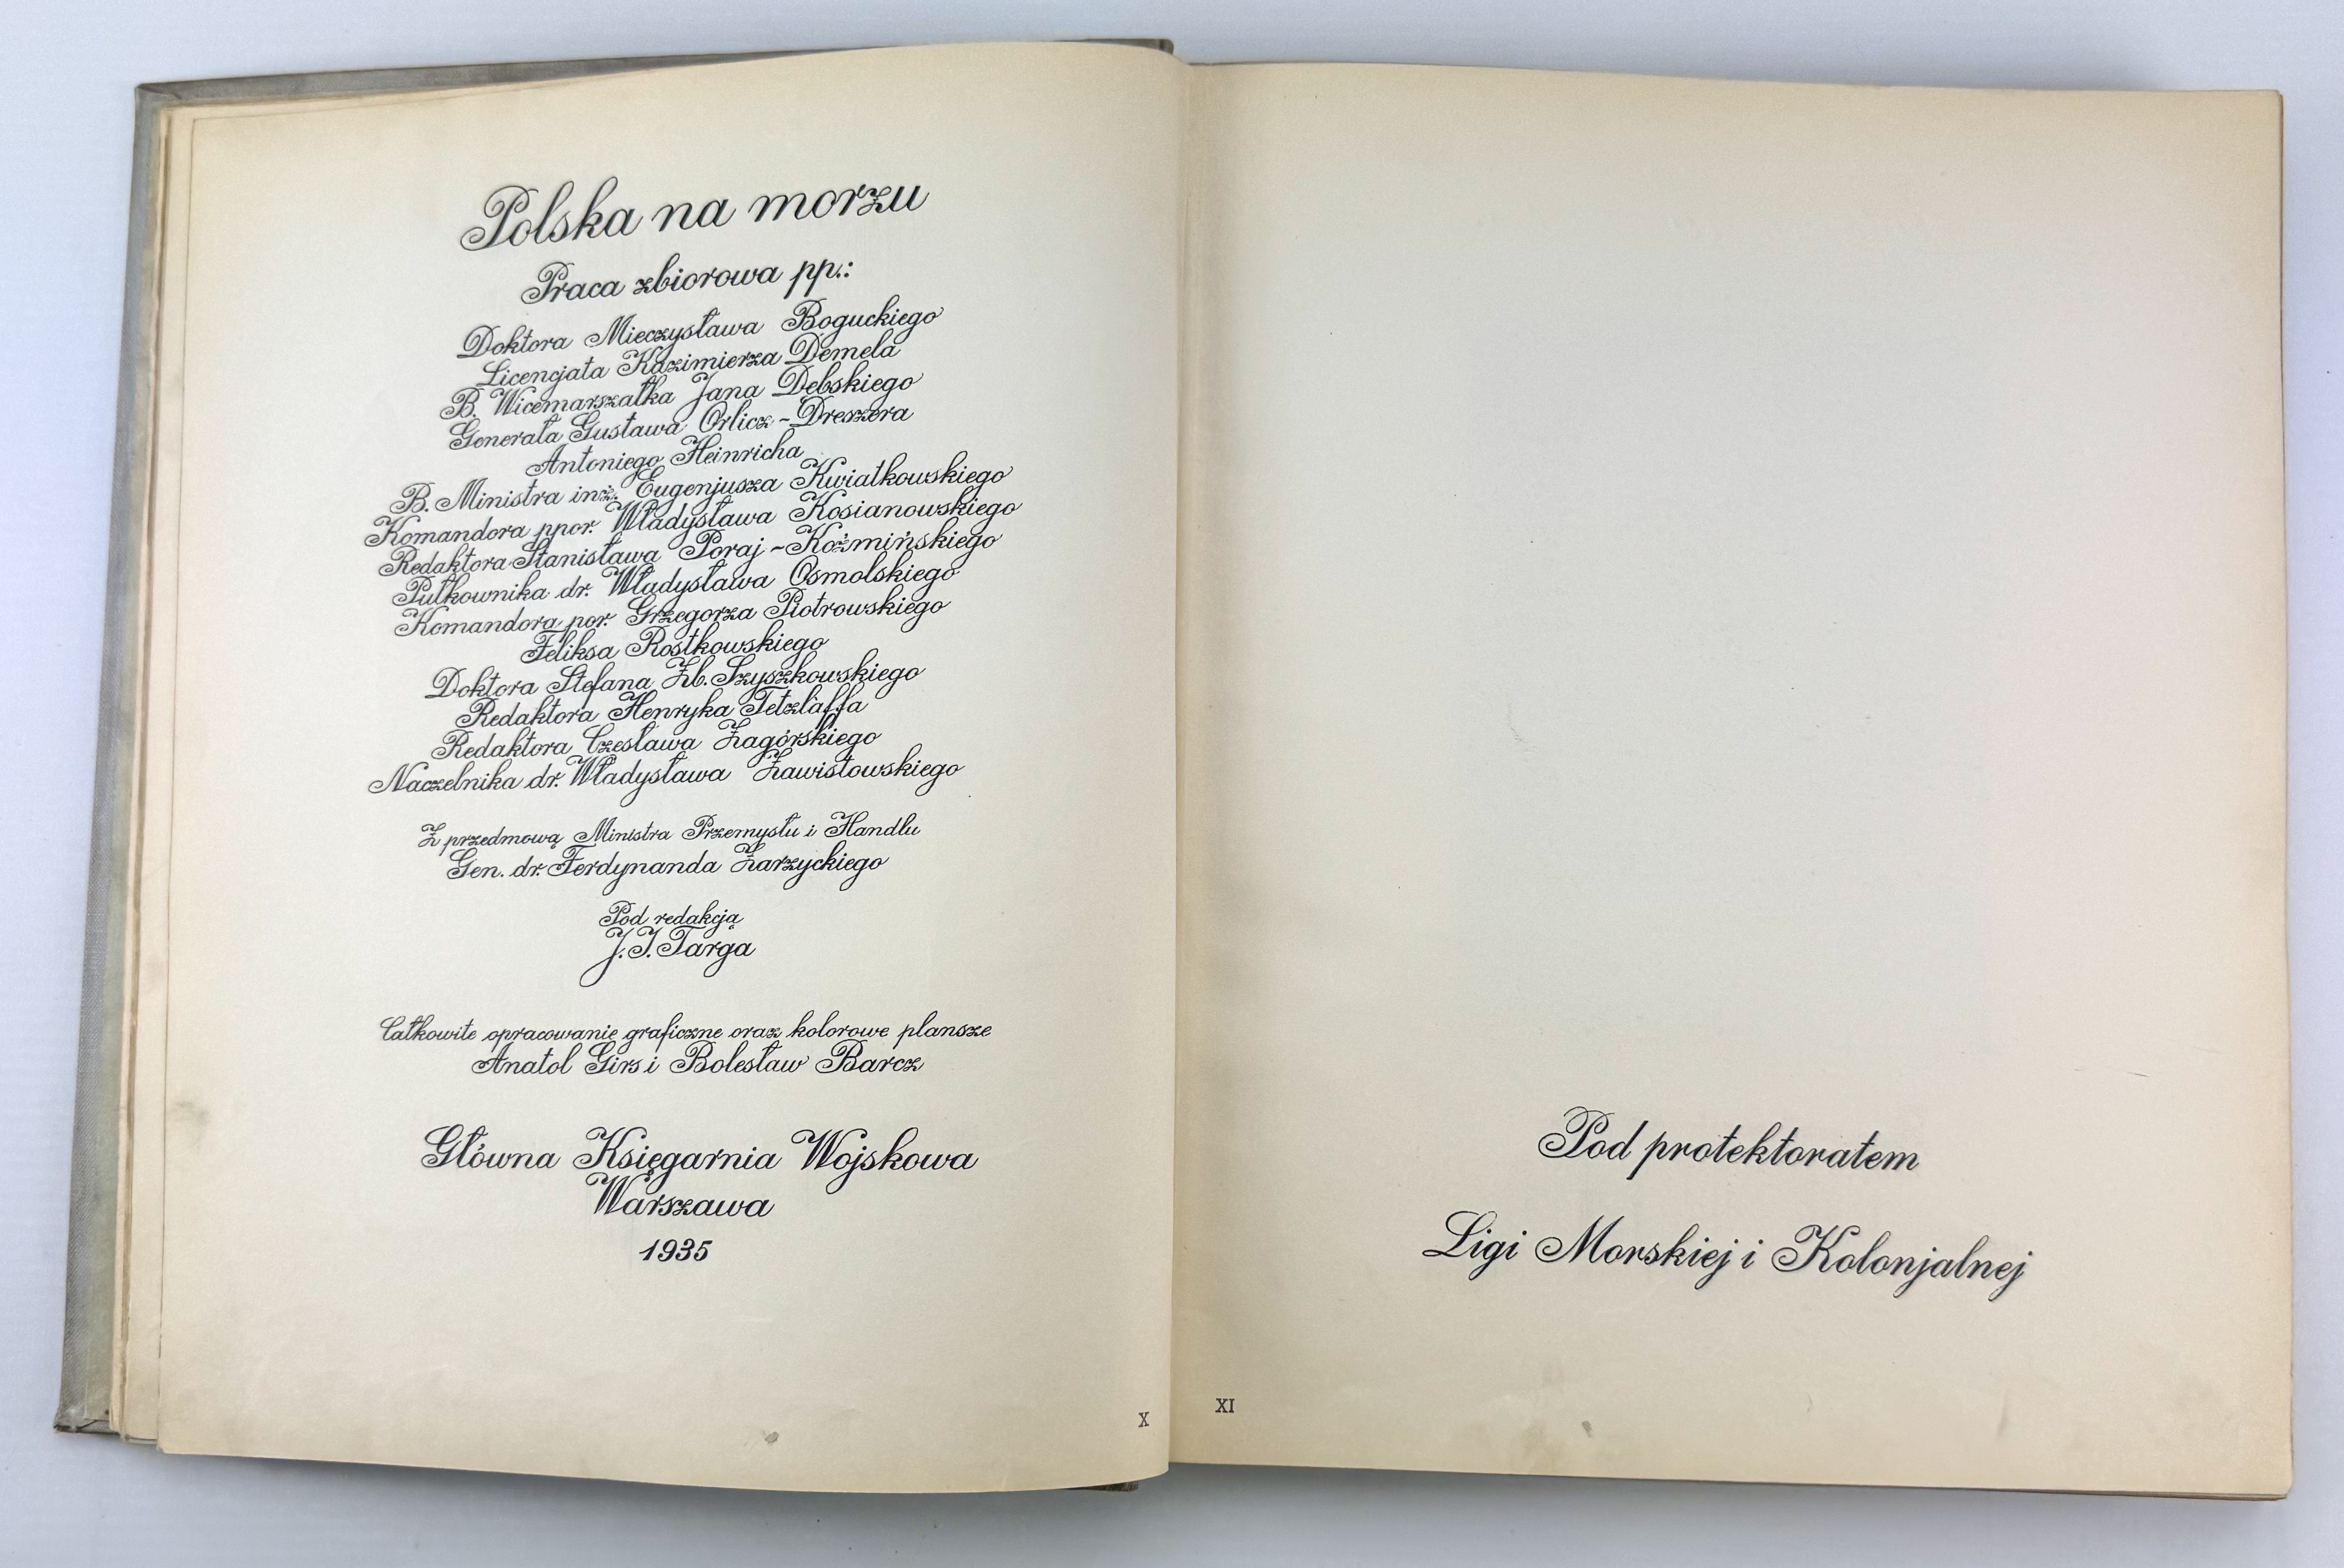 Polska na morzu
Praca zbiorowa pp.:
Doktora Mieczysława Boguckiego
Licencjata Kazimierza Demela
B. Wicemarszałka Jana Dębskiego
Generała Gustawa Orlicz-Dreszera
Antoniego Heinricha
B. Ministra inż. Eugenjusza Kwiatkowskiego
Komandora ppor. Władysława Kosianowskiego
Redaktora Stanisława Poraj-Koźmińskiego
Pułkownika dr. Władysława Osmolskiego
Komandora por. Grzegorza Piotrowskiego
Feliksa Rostkowskiego
Doktora Stefana Zb. Szyszkowskiego
Redaktora Henryka Tetzlaffa
Redaktora Czesława Zagórskiego
Naczelnika dr. Władysława Zawistowskiego
Z przedmową Ministra Przemysłu i Handlu
Gen. dr. Ferdynanda Zarzyckiego
Pod redakcją
J. I. Targa
Całkowite opracowanie graficzne oraz kolorowe plansze
Anatol Girs i Bolesław Barcz
Główna Księgarnia Wojskowa
Warszawa
1935
X
Pod protektoratem
Ligi Morskiej i Kolonjalnej
XI